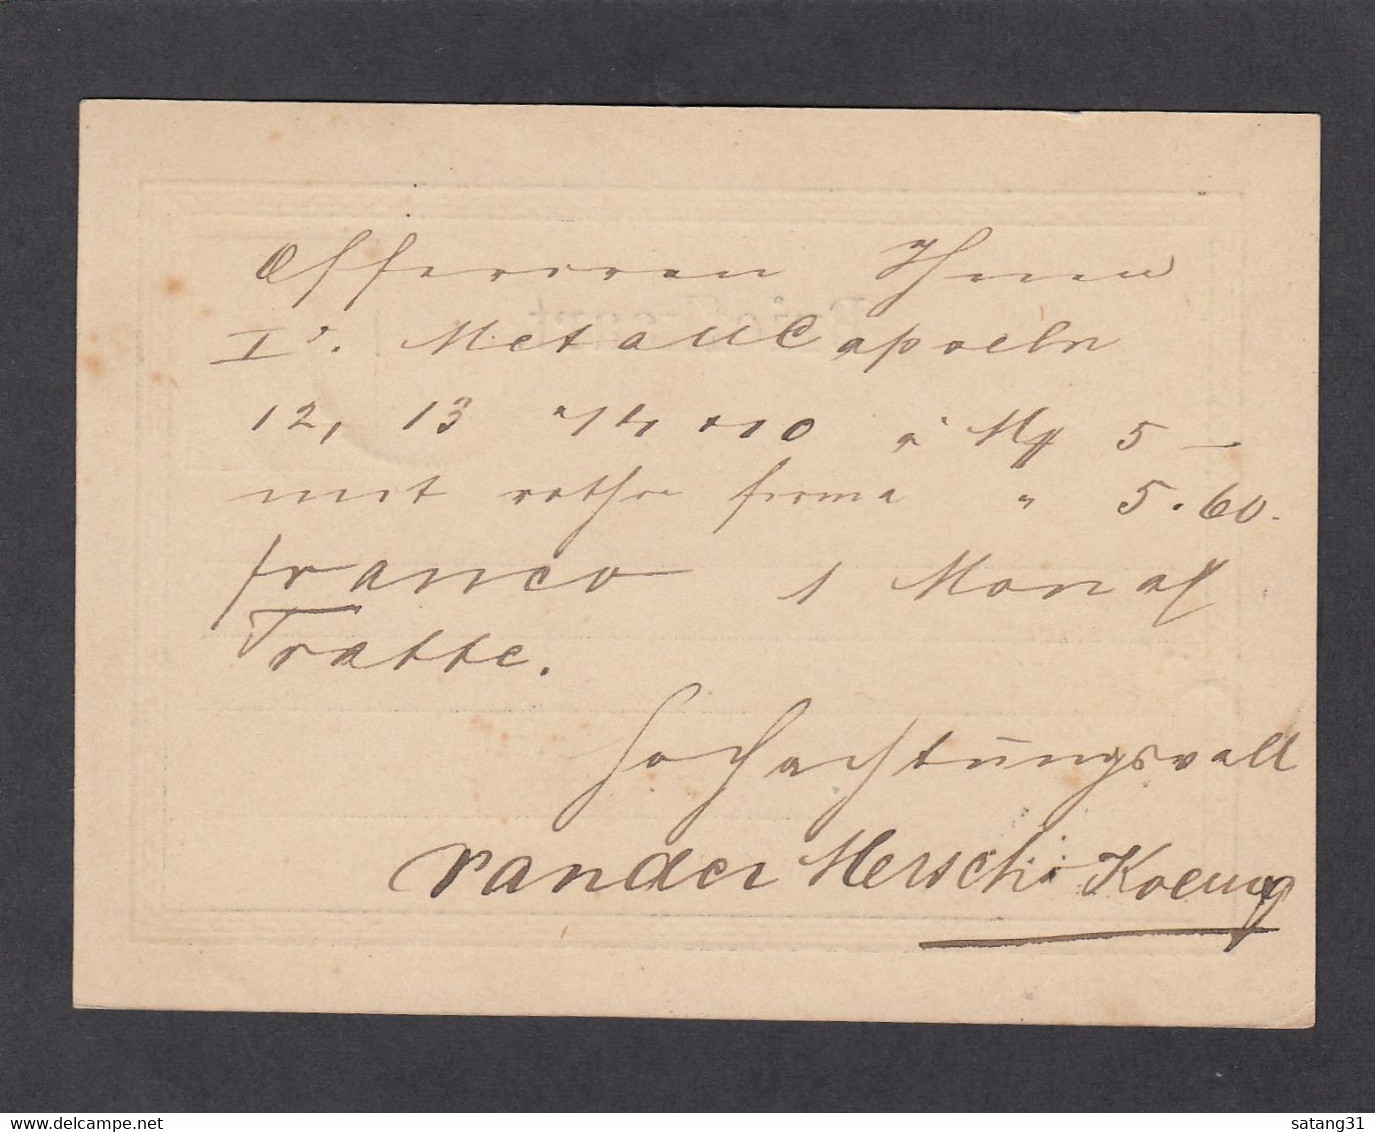 Offeriren Ihnen
Iᵃ. MetallCapseln
12, 13 14 à M 5 —
mit rother firma " 5.60.
franco 1 Monat
Tratte.
Hochachtungsvoll
van der Mersch Koenig
delcampe.net
satang31